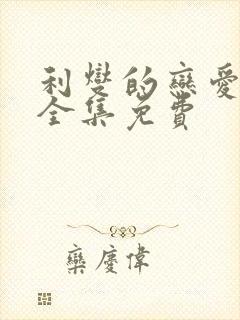 利燮的恋愛
全集免費
欒慶偉